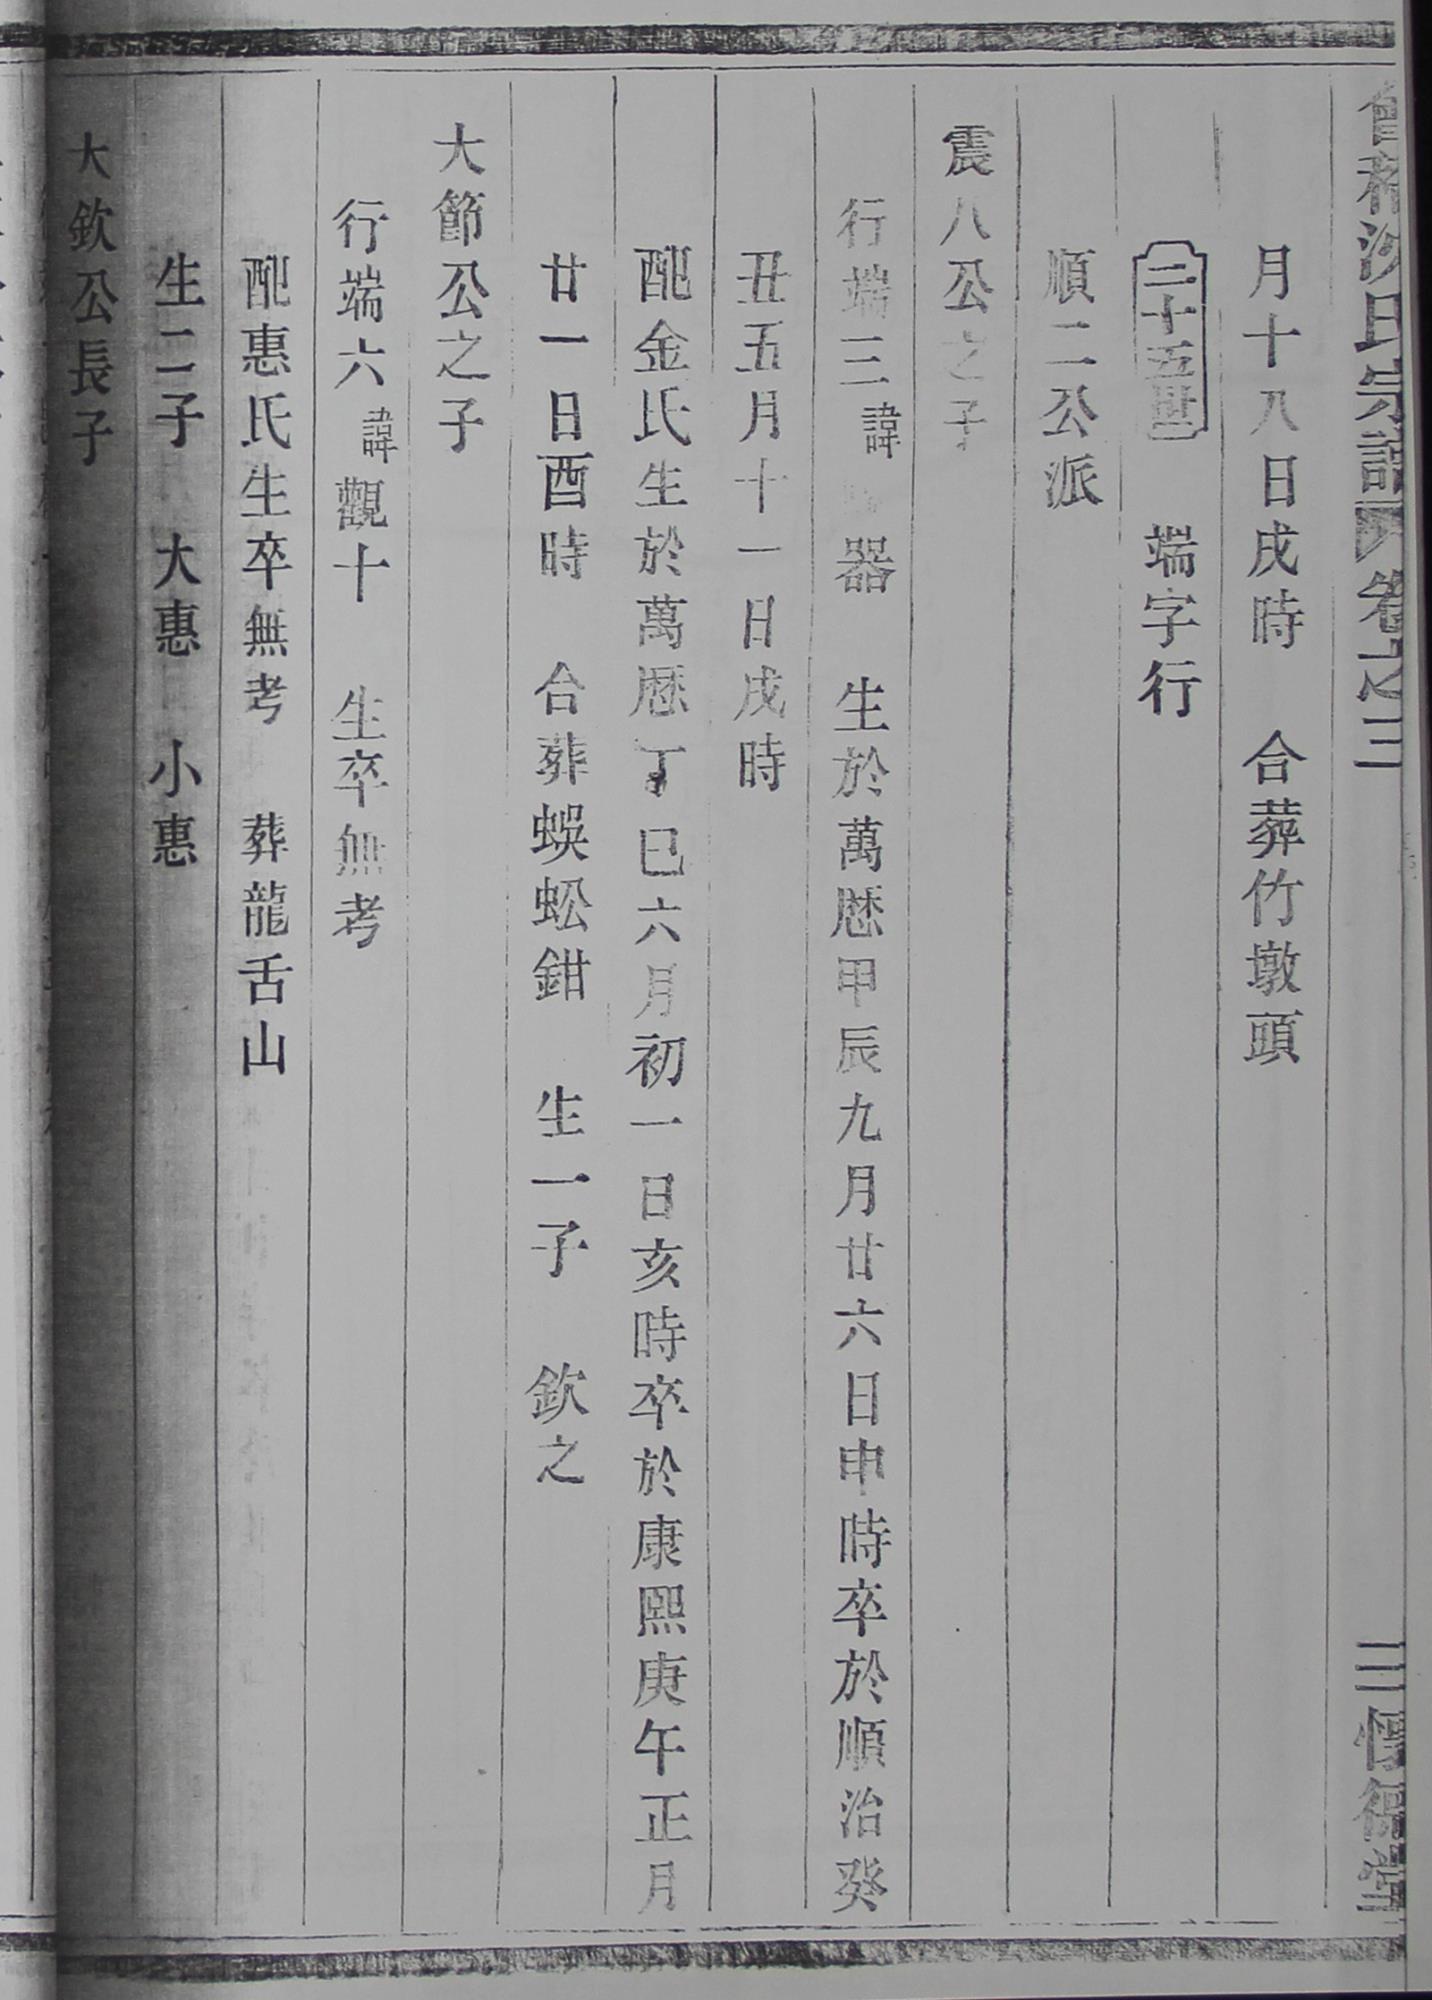 會稽沈氏宗譜 卷之三 三 懷德堂
月十八日戌時 合葬竹墩頭
二十五世 端字行
順二公派
震八公之子
行端三 諱 器 生於萬厯甲辰九月廿六日申時卒於順治癸
丑五月十一日戌時
配金氏生於萬厯丁巳六月初一日亥時卒於康熙庚午正月
廿一日酉時 合葬蜈蚣鉗 生一子 欽之
大節公之子
行端六 諱觀十 生卒無考
配惠氏生卒無考 葬龍舌山
生二子 大惠 小惠
大欽公長子